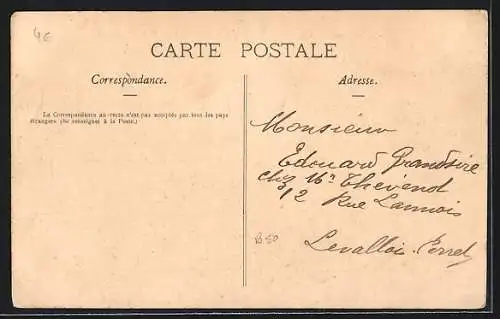 4€
CARTE POSTALE
Correspondance.
Adresse.
La Correspondance au recto n'est pas acceptée par tous les pays
étrangers (Se renseigner à la Poste.)
Monsieur
Edouard Grandsire
chez Mr Thevenot
312 Rue Lannois
Levallois-Perret